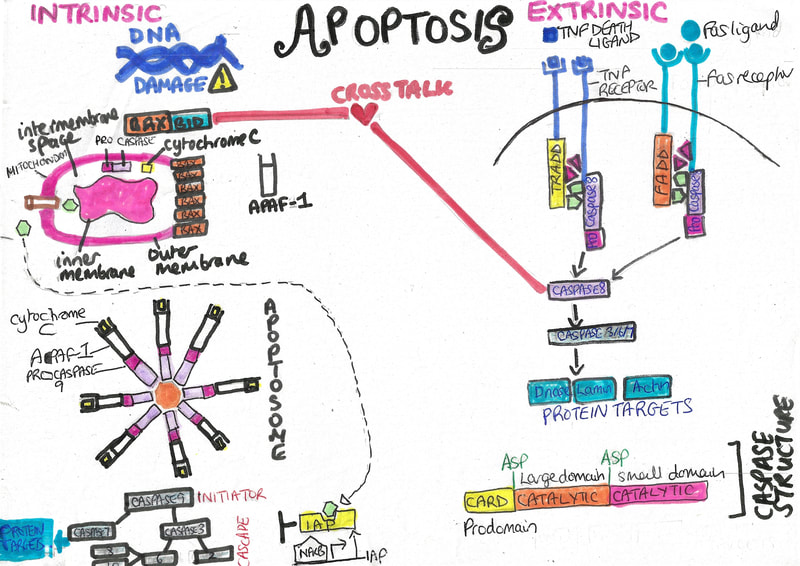 INTRINSIC
DNA
DAMAGE
APOPTOSIS
EXTRINSIC
TNF DEATH
LIGAND
Fas ligand
TNF
RECEPTOR
Fas receptor
CROSS TALK
BAX BID
intermembrane
space
PRO CASPASE
cytochrome C
BAX
BAX
BAX
BAX
BAX
BAX
APAF-1
inner
membrane
outer
membrane
TRADD
Caspase8
PRO
FADD
Caspase
PRO
CASPASE8
CASPASE 3/6/7
Dnase Lamin Actin
PROTEIN TARGETS
cytochrome
C
APAF-1
PROCASPASE
9
APOPTOSOME
CASPASE9 INITIATOR
CASPASE7 CASPASE3
6 2
CASCADE
PROTEIN
TARGETS
IAP
NFKB
IAP
ASP ASP
Large domain small domain
CARD CATALYTIC CATALYTIC
Prodomain
CASPASE
STRUCTURE